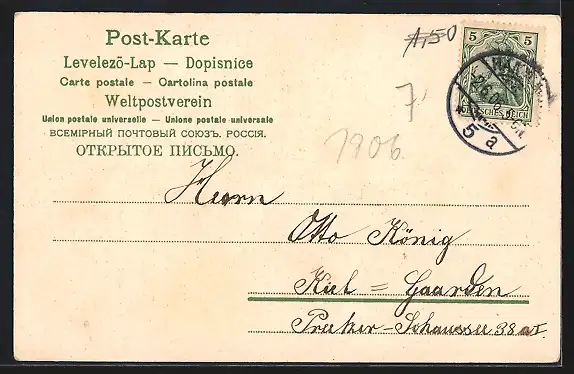 Post-Karte
Levelező-Lap — Dopisnice
Carte postale — Cartolina postale
Weltpostverein
Union postale universelle — Unione postale universale
ВСЕМІРНЫЙ ПОЧТОВЫЙ СОЮЗЪ. РОССІЯ.
ОТКРЫТОЕ ПИСЬМО.
1,50
7
1906
5 5
DEUTSCHES REICH
5 a
Herrn
Otto König
Kiel = Gaarden
Preetzer-Schaussee 38 a I.